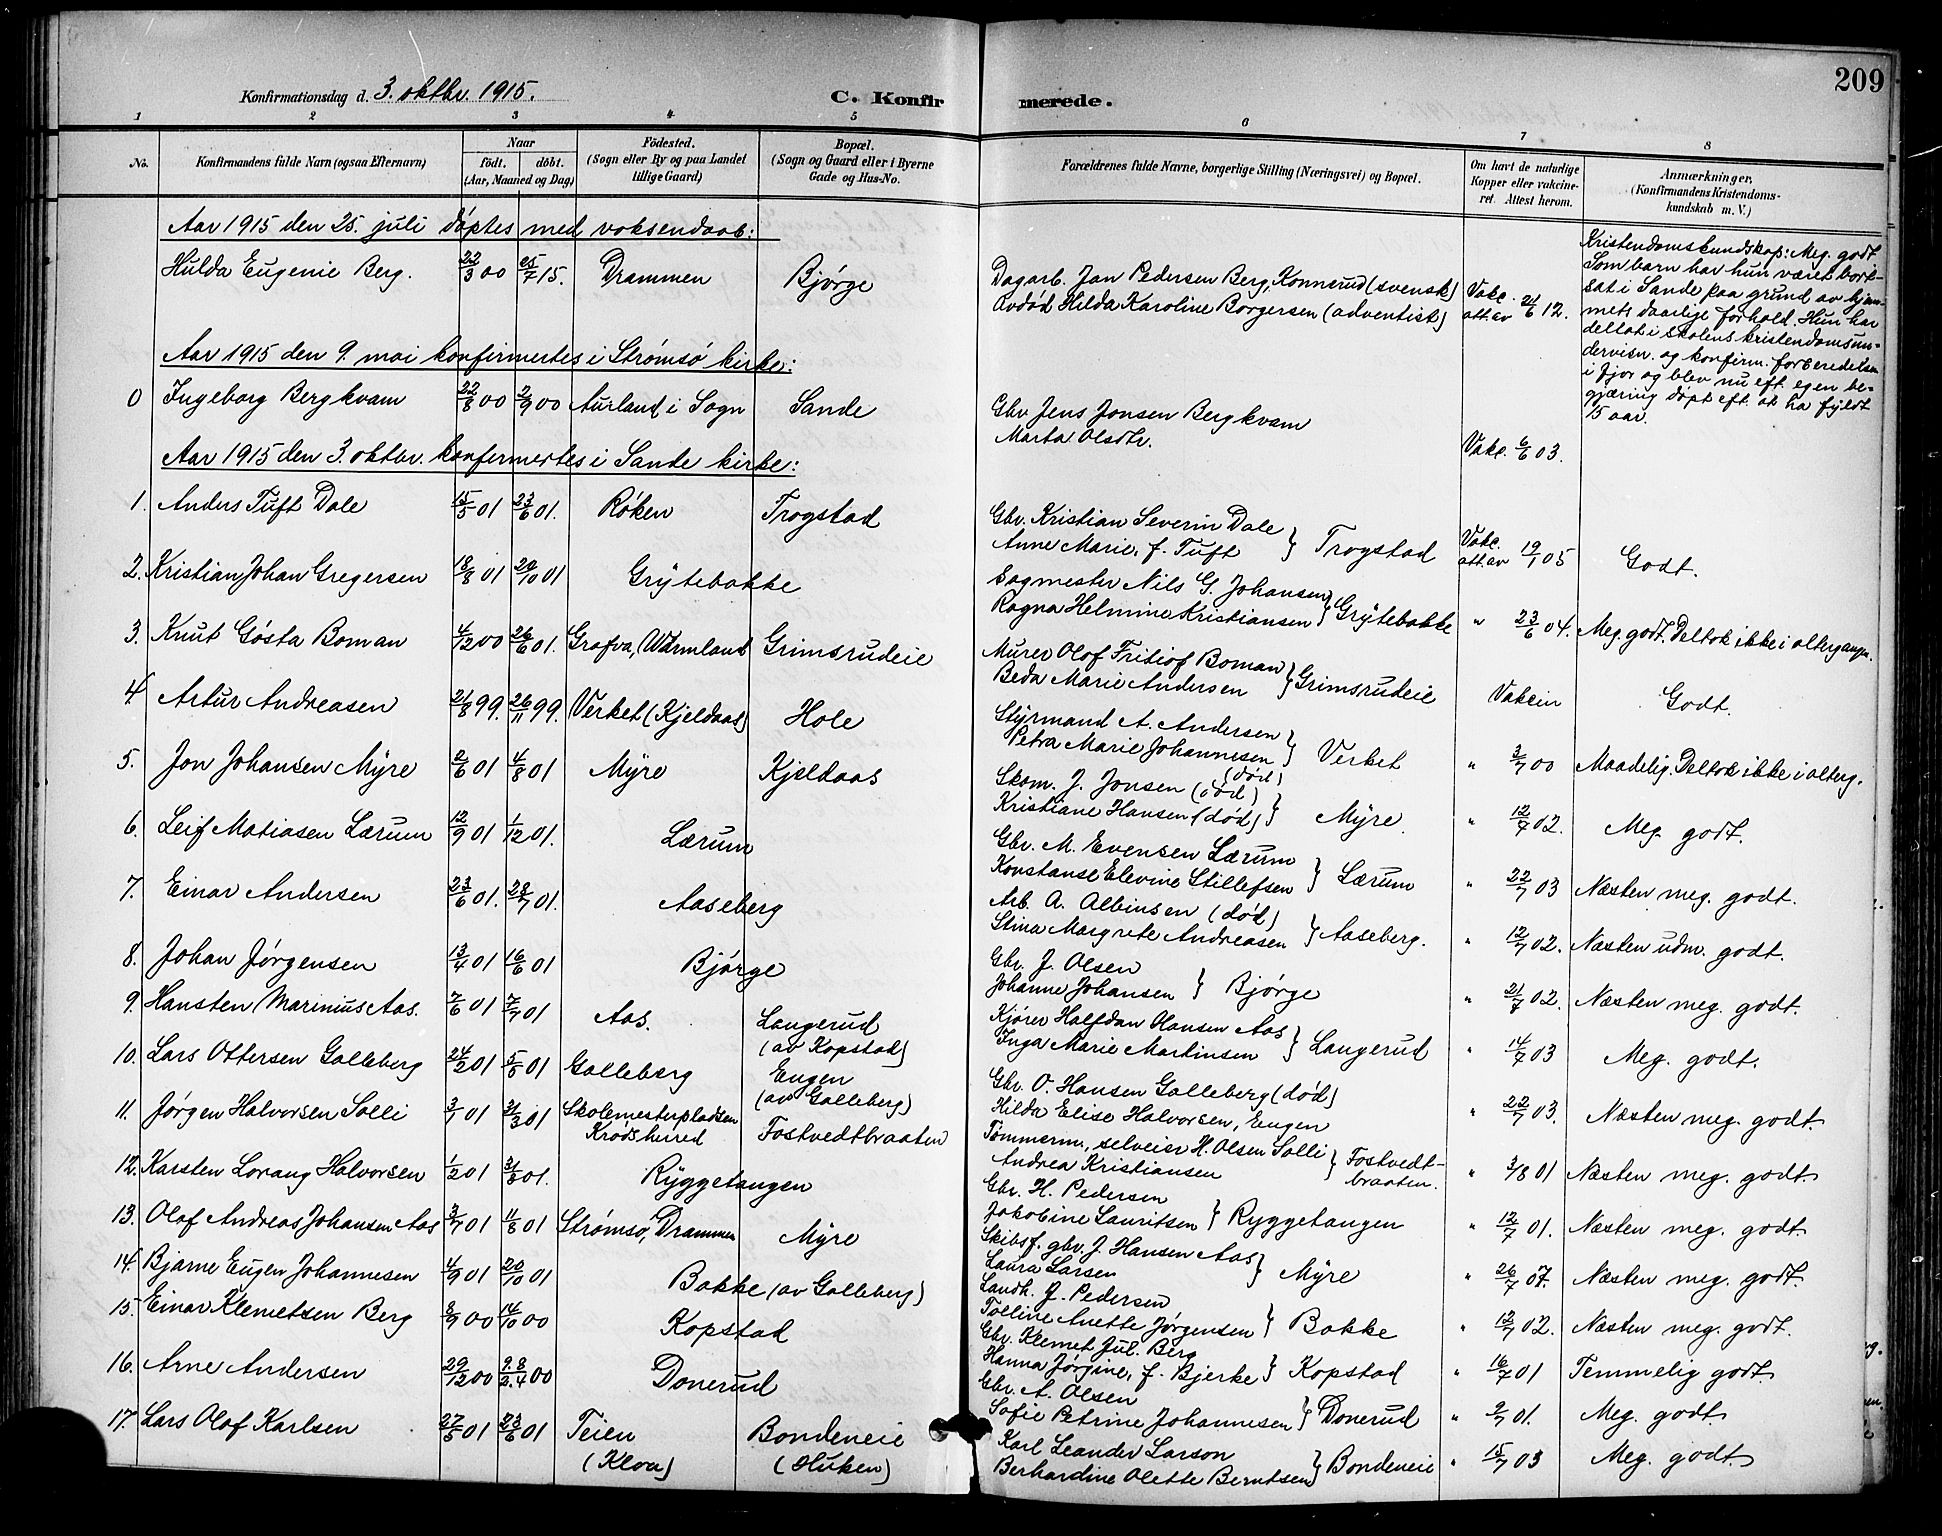 209
Konfirmationsdag d. 3. oktbr. 1915.
C. Konfirmerede.
1 2 3 4 5 6 7 8
No. Konfirmandens fulde Navn (ogsaa Efternavn) Naar födt. döbt. (Aar, Maaned og Dag) Födested. (Sogn eller By og paa Landet tillige Gaard) Bopæl. (Sogn og Gaard eller i Byerne Gade og Hus-No. Forældrenes fulde Navne, borgerlige Stilling (Næringsvei) og Bopæl. Om havt de naturlige Kopper eller vakcineret. Attest herom. Anmærkninger. (Konfirmandens Kristendomskundskab m. V.)
Aar 1915 den 25. juli døptes med voksendaab:
Hulda Eugenie Berg. 22/3 00 25/7 15. Drammen Bjørge
Dagarb. Jan Pedersen Berg, Konnerud (svensk)
Avdød Hilda Karoline Borgersen (adventist)
Vakc. att. av 21/6 12.
Kristendomskundskap: Meg. godt
Som barn har hun været bort-
sat i Sande paa grund av hjem-
mets daarlige forhold. Hun har
deltat i skolens kristendomsun-
dervisn. og konfirm. forberedelsen
i fjor og blev nu eft. egen be-
gjæring døpt eft. at ha fyldt
15 aar.
Aar 1915 den 9. mai konfirmertes i Strømsø kirke:
0 Ingeborg Bergkvam 22/8 00 2/9 00 Aurland i Sogn Sande
Gbr. Jens Jonsen Bergkvam
Marta Olsdtr.
Vakc. 6/6 03.
Aar 1915 den 3. oktbr. konfirmertes i Sande kirke:
1. Anders Tuft Dale 15/5 01 23/6 01. Røken Trogstad
Gbr. Kristian Severin Dale
Anne Marie, f. Tuft } Trogstad
Vakc. att. av 19/7 05 Godt.
2. Kristian Johan Gregersen 18/8 01 20/10 01 Grytebakke
Sagmester Nils G. Johansen
Ragna Helmine Kristiansen } Grytebakke
" 23/6 04. Meg. godt. Deltok ikke i altergangn.
3. Knut Gösta Boman 4/12 00 26/6 01. Grafva, Wärmland Grimsrudeie
Murer Olof Fritiof Boman
Beda Marie Andersen } Grimsrudeie
Vakcin Godt.
4. Artur Andreasen 21/8 99. 26/11 99. Verket (Kjeldaas) Hole
Styrmand A. Andersen
Petra Marie Johannesen (død) } Verket
" 3/7 00 Maadelig. Deltok ikke i alterg.
5. Jon Johansen Myre 2/6 01 4/8 01 Myre Kjeldaas
Skom. J. Jonsen (død)
Kristiane Hansen (død) } Myre
" 12/7 02. Meg. godt.
6. Leif Matiasen Lærum 12/9 01 1/12 01. Lærum
Gbr. M. Evensen Lærum
Konstanse Elevine Stillefsen } Lærum
" 22/7 03 Næsten meg. godt.
7. Einar Andersen 23/6 01. 28/7 01. Aaseberg
Arb. A. Albinsen (død)
Stina Margrete Andreasen } Aaseberg.
" 12/7 02. Næsten udm. godt.
8. Johan Jørgensen 13/4 01 16/6 01 Bjørge
Gbr. J. Olsen
Johanne Johansen } Bjørge
" 21/7 02. Næsten meg. godt.
9. Hansten Marinius Aas. 7/6 01 7/7 01 Aas. Langerud (av Kopstad)
Kjører Halfdan Hansen Aas
Inga Marie Martinsen } Langerud
" 14/7 03 Meg. godt.
10. Lars Ottersen Galleberg 24/2 01 5/5 01 Galleberg Eugen (av Galleberg)
Gbr. O. Hansen Galleberg (død)
Hilda Elise Halvorsen, Eugen
" 22/7 03. Næsten meg. godt.
11. Jørgen Halvorsen Solli 3/1 01 31/3 01 Skolemesterpladsen Krødsherred Fostvedtbraaten
Tømmerm., selveier H. Olsen Solli
Andrea Kristiansen } Fostvedt-
braaten.
" 3/8 01 Næsten meg. godt.
12. Karsten Lorang Halvorsen 1/2 01 31/3 01. Ryggetangen
Gbr. H. Pedersen
Jakobine Lauritsen } Ryggetangen
" 12/7 01. Næsten meg. godt.
13. Olaf Andreas Johansen Aas 3/7 01 11/8 01 Strømsø, Drammen Myre
Skibsf. gbr. J. Hansen Aas
Laura Larsen } Myre
" 26/7 07. Næsten meg. godt.
14. Bjarne Eugen Johannesen 4/9 01 20/10 01 Bakke (av Galleberg)
Landh. J. Pedersen
Tolline Anette Jørgensen } Bakke
" 12/7 02. Næsten meg. godt.
15. Einar Klemetsen Berg 8/9 00 14/10 00 Kopstad
Gbr. Klemet Jul. Berg
Hanna Jørgine, f. Bjerke } Kopstad
" 16/7 01 Temmelig godt.
16. Arne Andersen 29/12 00 Donerud
Gbr. A. Olsen
Sofie Petrine Johannesen } Donerud
" 2/7 01. Meg. godt
17. Lars Olaf Karlsen 27/5 01 23/6 01 Teien (Klova) Bondeneie (Huken)
Karl Leander Larson
Berhardine Olette Berntsen } Bondeneie
" 15/7 03 Meg. godt.